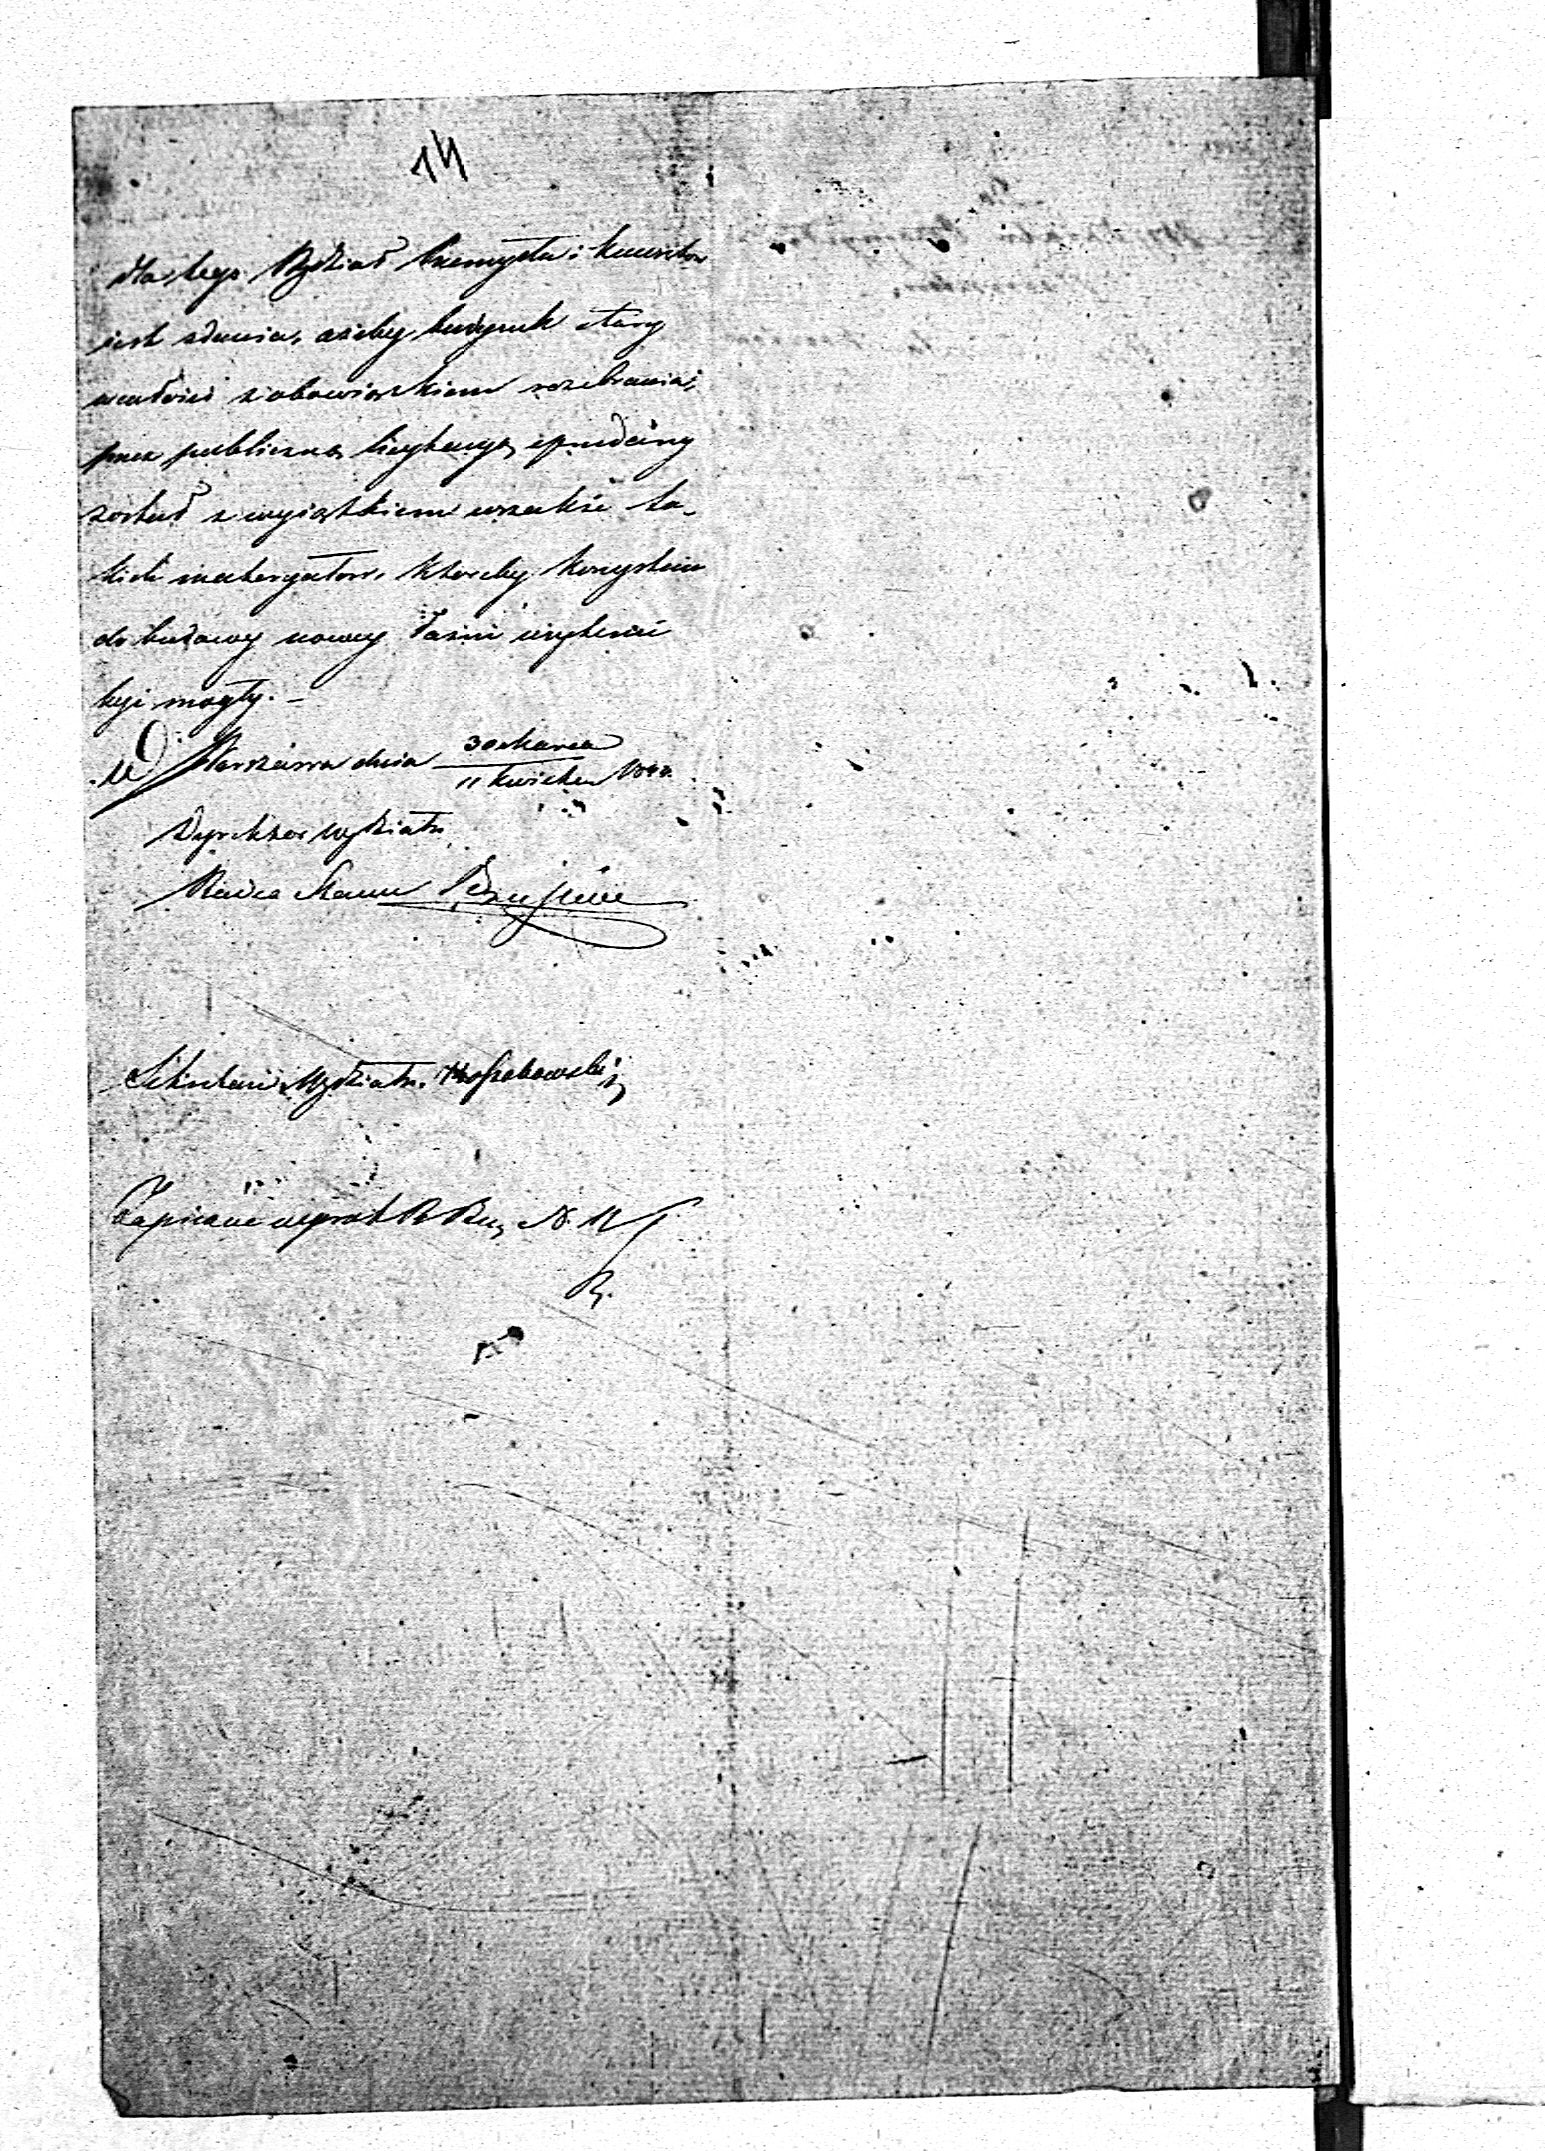 14
dla tego Wydział Przemysłu i Kunsztów
jest zdania, ażeby budynek stary
w całości z obowiązkiem rozebrania,
przez publiczną licytacyą sprzedany
został z wyiątkiem wszakże ta-
kich materyałów, któreby korzystnie
do budowy nowey Łaźni użytemi
być mogły. –
Warszawa dnia 30 Marca
11 Kwietnia
Dyrektor Wydziału
Radca Stanu
Sekretarz Wydziału
Zapisane w prot N. 11
R.